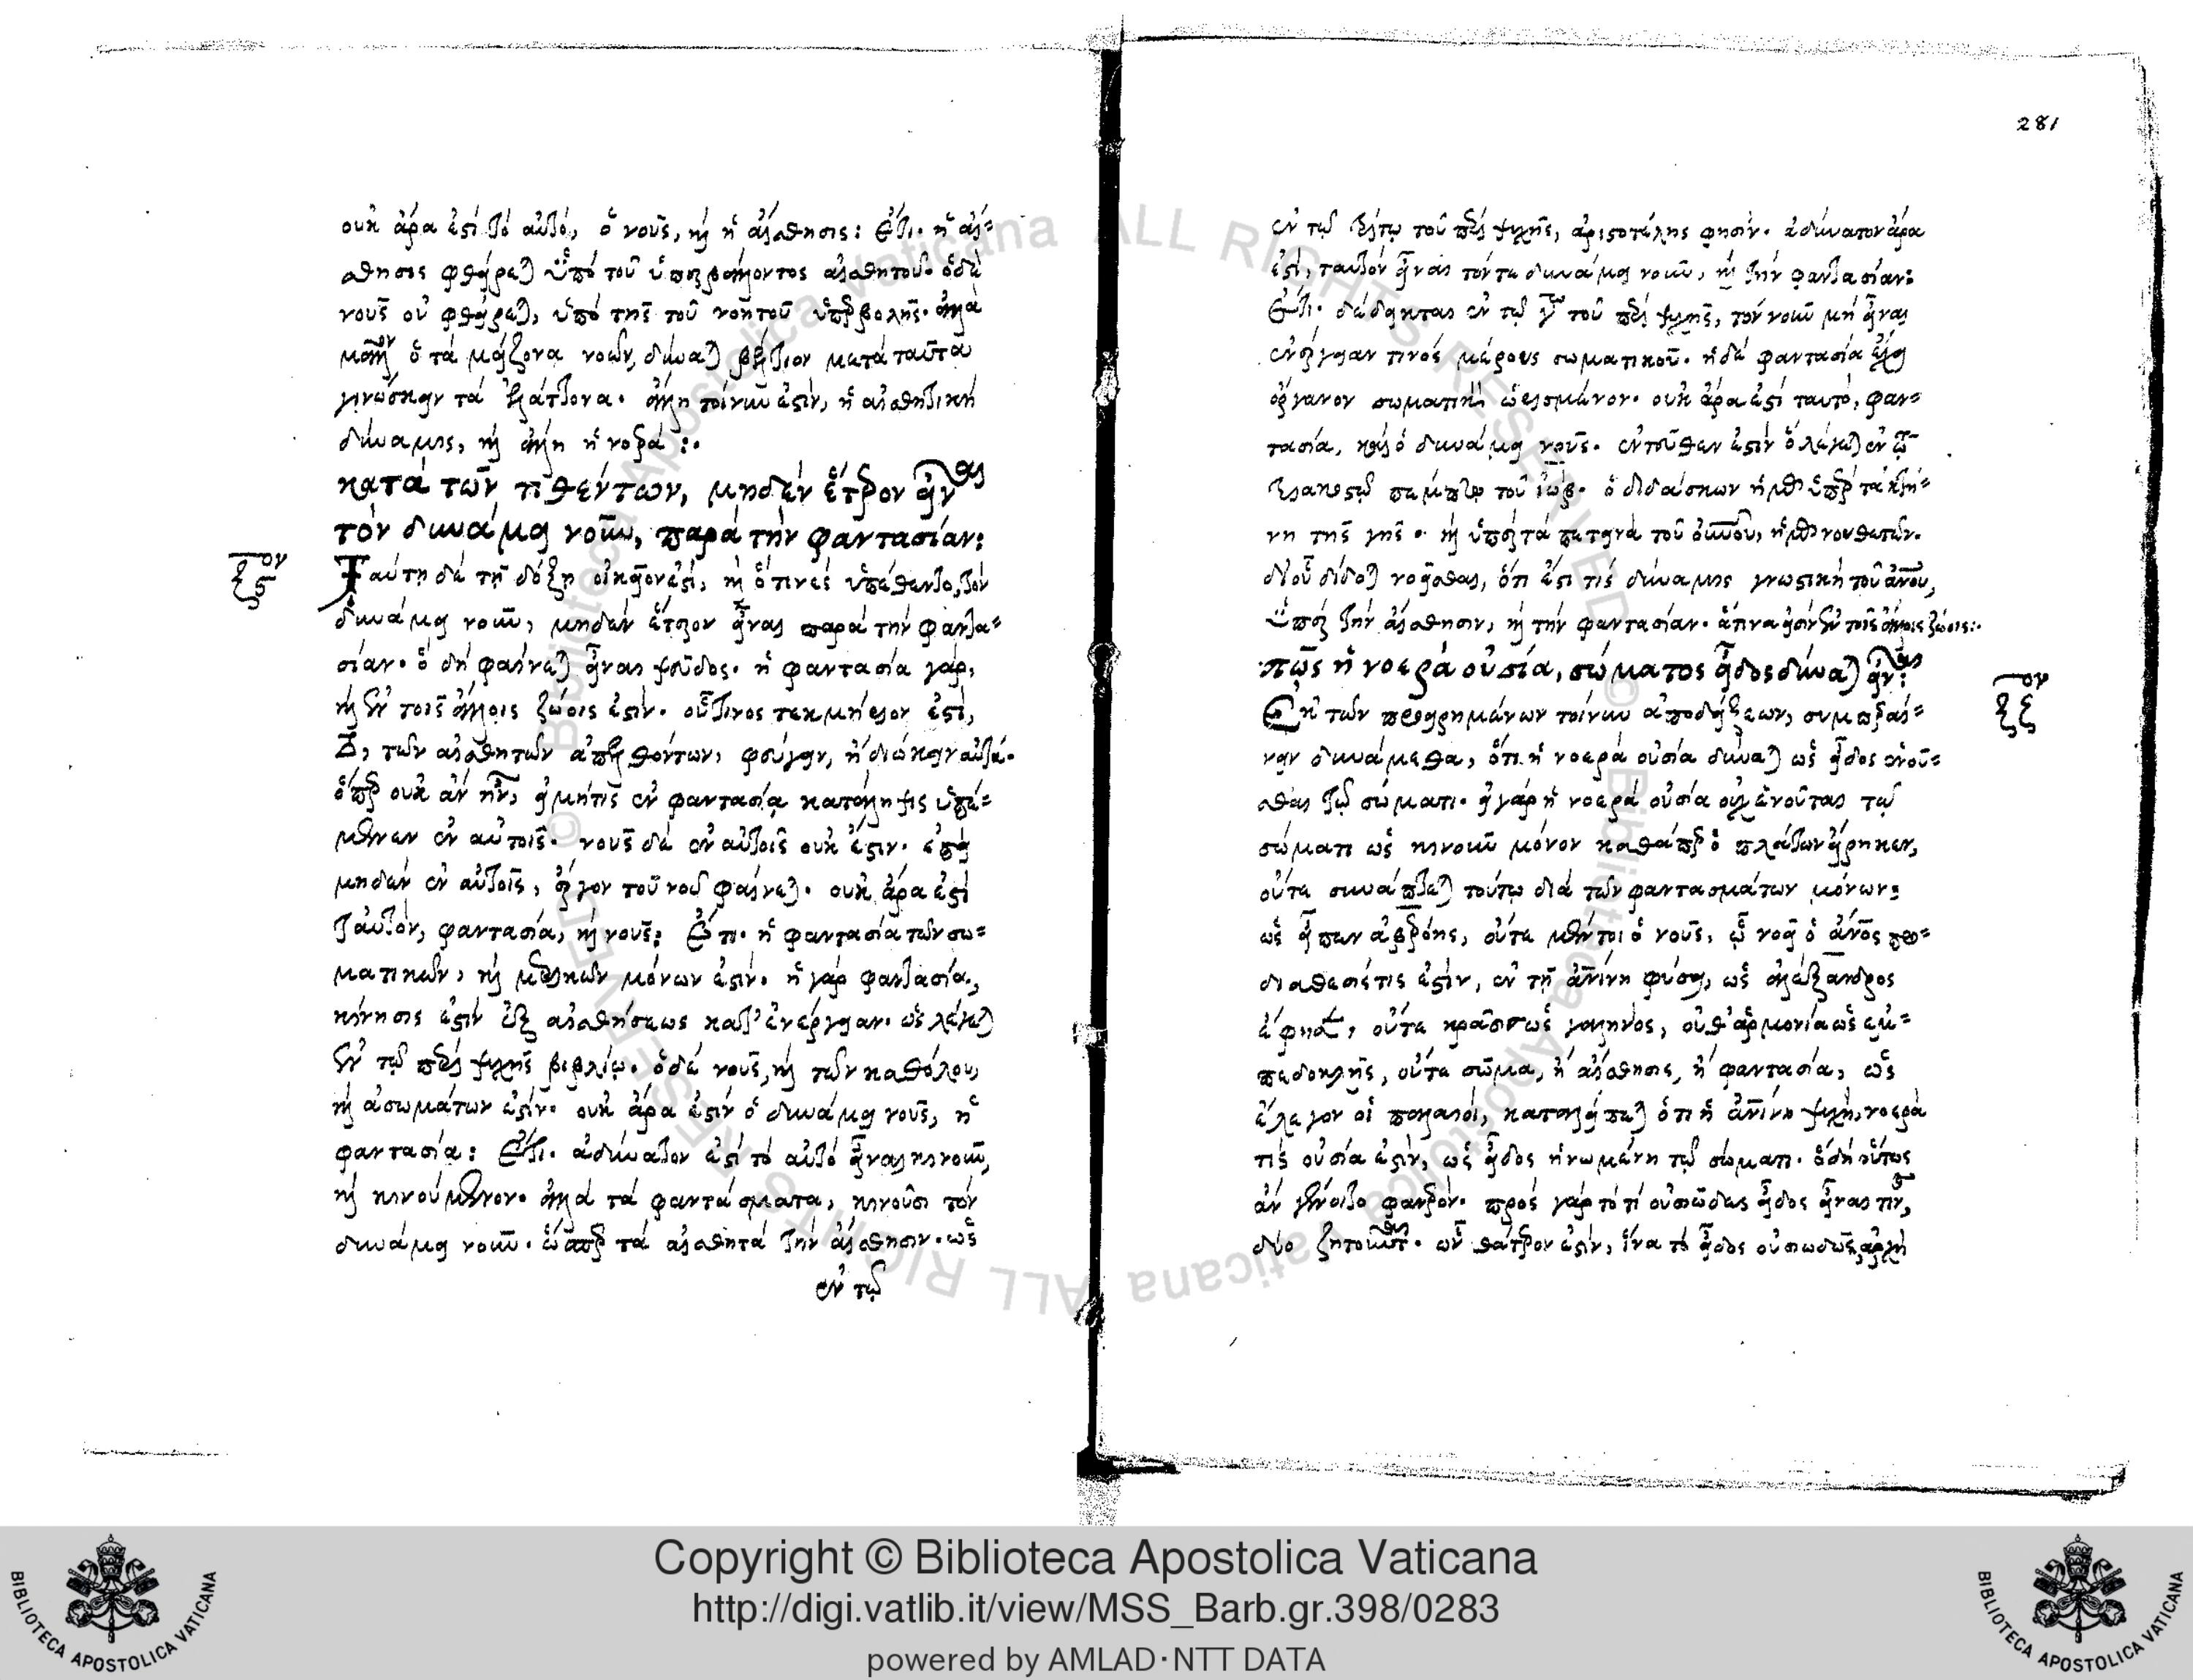 οὐκ ἄρα ἐστὶ τὸ αὐτό, ὁ νοῦς, καὶ ἡ αἴσθησις: Ἔτι. ἡ αἴ=
σθησις φθείρεται ὑπὸ τοῦ ὑπερβάλλοντος αἰσθητοῦ. ὁ δὲ
νοῦς οὐ φθείρεται, ὑπὸ τῆς τοῦ νοητοῦ ὑπερβολῆς. ἀλλὰ
μᾶλλον ὁ τὰ μείζονα νοῶν, δύναται βέλτιον μετὰ ταῦτα
γινώσκειν τὰ ἐλάττονα. ἄλλη τοίνυν ἐστὶν, ἡ αἰσθητικὴ
δύναμις, καὶ ἄλλη ἡ νοερά:.
κατὰ τῶν τιθέντων, μηδὲν ἕτερον εἶναι
τὸν δυνάμει νοῦν, παρὰ τὴν φαντασίαν:
ξϛον
Ταύτῃ δὲ τῇ δόξῃ οἰκεῖόν ἐστι, καὶ ὅ τινες ὑπέθεντο, τὸν
δυνάμει νοῦν, μηδὲν ἕτερον εἶναι παρὰ τὴν φαντα=
σίαν. ὃ δὴ φαίνεται εἶναι ψεῦδος. ἡ φαντασία γὰρ,
καὶ ἐν τοῖς ἄλλοις ζώοις ἐστὶν. οὗτινος τεκμήριον ἐστὶ,
τὸ, τῶν αἰσθητῶν ἀπελθόντων, φεύγειν, ἢ διώκειν αὐτά.
ὅπερ οὐκ ἂν ἦν, εἰ μήτις ἐν φαντασίᾳ κατάληψις ὑπέ=
μενεν ἐν αὐτοῖς. νοῦς δὲ ἐν αὐτοῖς οὐκ ἔστιν. ἐπεὶ
μηδὲν ἐν αὐτοῖς, ἔργον τοῦ νοῦ φαίνεται. οὐκ ἄρα ἐστὶ
ταὐτὸν, φαντασία, καὶ νοῦς: Ἔτι. ἡ φαντασία τῶν σω=
ματικῶν, καὶ μερικῶν μόνων ἐστὶν. ἡ γὰρ φαντασία,
κίνησις ἐστὶν ἐξ αἰσθήσεως κατ' ἐνέργειαν. ὡς λέγεται
ἐν τῷ περὶ ψυχῆς βιβλίῳ. ὁ δὲ νοῦς, καὶ τῶν καθόλου,
καὶ ἀσωμάτων ἐστίν. οὐκ ἄρα ἐστὶν ὁ δυνάμει νοῦς, ἡ
φαντασία: Ἔτι. ἀδύνατον ἐστὶ τὸ αὐτὸ εἶναι κινοῦν,
καὶ κινούμενον. ἀλλὰ τὰ φαντάσματα, κινοῦσι τὸν
δυνάμει νοῦν. ὥσπερ τὰ αἰσθητὰ τὴν αἴσθησιν. ὡς
ἐν τῷ
281
ἐν τῷ τρίτῳ τοῦ περὶ ψυχῆς, ἀριστοτέλης φησὶν. ἀδύνατον ἄρα
ἐστὶ, ταὐτὸν εἶναι τόν τε δυνάμει νοῦν, καὶ τὴν φαντασίαν:
Ἔτι. δέδεικται ἐν τῷ γʹ τοῦ περὶ ψυχῆς, τὸν νοῦν μὴ εἶναι
ἐνέργειαν τινὸς μέρους σωματικοῦ. ἡ δὲ φαντασία ἔχει
ὄργανον σωματικὸν ὡρισμένον. οὐκ ἄρα ἐστὶ ταυτὸ, φαν=
τασία, καὶ ὁ δυνάμει νοῦς. ἐντεῦθεν ἐστὶν ὃ λέγεται ἐν τῷ
τριακοστῷ πέμπτῳ τοῦ ἰώβ. ὁ διδάσκων ἡμᾶς ὑπὲρ τὰ κτή=
νη τῆς γῆς. καὶ ὑπὲρ τὰ πετεινὰ τοῦ οὐνοῦ, ἡμᾶς νουθετῶν.
δι' οὗ δίδοται νοεῖσθαι, ὅτι ἐστί τις δύναμις γνωστικὴ τοῦ ἀνου,
ὑπὲρ τὴν αἴσθησιν, καὶ τὴν φαντασίαν. ἅτινα εἰσὶν ἐν τοῖς ἄλλοις ζώοις:.
πῶς ἡ νοερὰ οὐσία, σώματος εἶδος δύναται εἶναι:
ξζον
Ἐκ τῶν προειρημένων τοίνυν ἀποδείξεων, συμπεραί=
νειν δυνάμεθα, ὅτι ἡ νοερὰ οὐσία δύναται ὡς εἶδος ἑνοῦ=
σθαι τῷ σώματι. εἰ γὰρ ἡ νοερὰ οὐσία οὐχ ἑνοῦται τῷ
σώματι ὡς κινοῦν μόνον καθάπερ ὁ πλάτων εἴρηκεν,
οὔτε συνάπτεται τούτῳ διὰ τῶν φαντασμάτων μόνων:
ὡς εἶπεν ἀβερόης, οὔτε μέντοι ὁ νοῦς, ᾧ νοεῖ ὁ ἄνος προ=
διάθεσίς τις ἐστὶν, ἐν τῇ ἀνίνῃ φύσει, ὡς ἀλέξανδρος
ἔφησε, οὔτε κρᾶσις ὡς γαληνὸς, οὔθ' ἁρμονία ὡς ἐμ=
πεδοκλῆς, οὔτε σῶμα, ἢ αἴσθησις, ἢ φαντασία, ὡς
ἔλεγον οἱ παλαιοί, καταλείπεται ὅτι ἡ ἀνίνη ψυχὴ, νοερά
τις οὐσία ἐστὶν, ὡς εἶδος ἡνωμένη τῷ σώματι. ὃ δὴ οὕτως
ἂν γένοιτο φανερόν. πρὸς γὰρ τὸ τὶ οὐσιῶδες εἶδος εἶναι τινὸς,
δύο ζητοῦνται. ὧν θάτερον ἐστὶν, ἵνα τὸ εἶδος οὐσιωδῶς ἀρχὴ
Copyright © Biblioteca Apostolica Vaticana
http://digi.vatlib.it/view/MSS_Barb.gr.398/0283
powered by AMLAD·NTT DATA
BIBLIOTECA APOSTOLICA VATICANA
BIBLIOTECA APOSTOLICA VATICANA
© Biblioteca Apostolica Vaticana ALL RIGHTS RESERVED